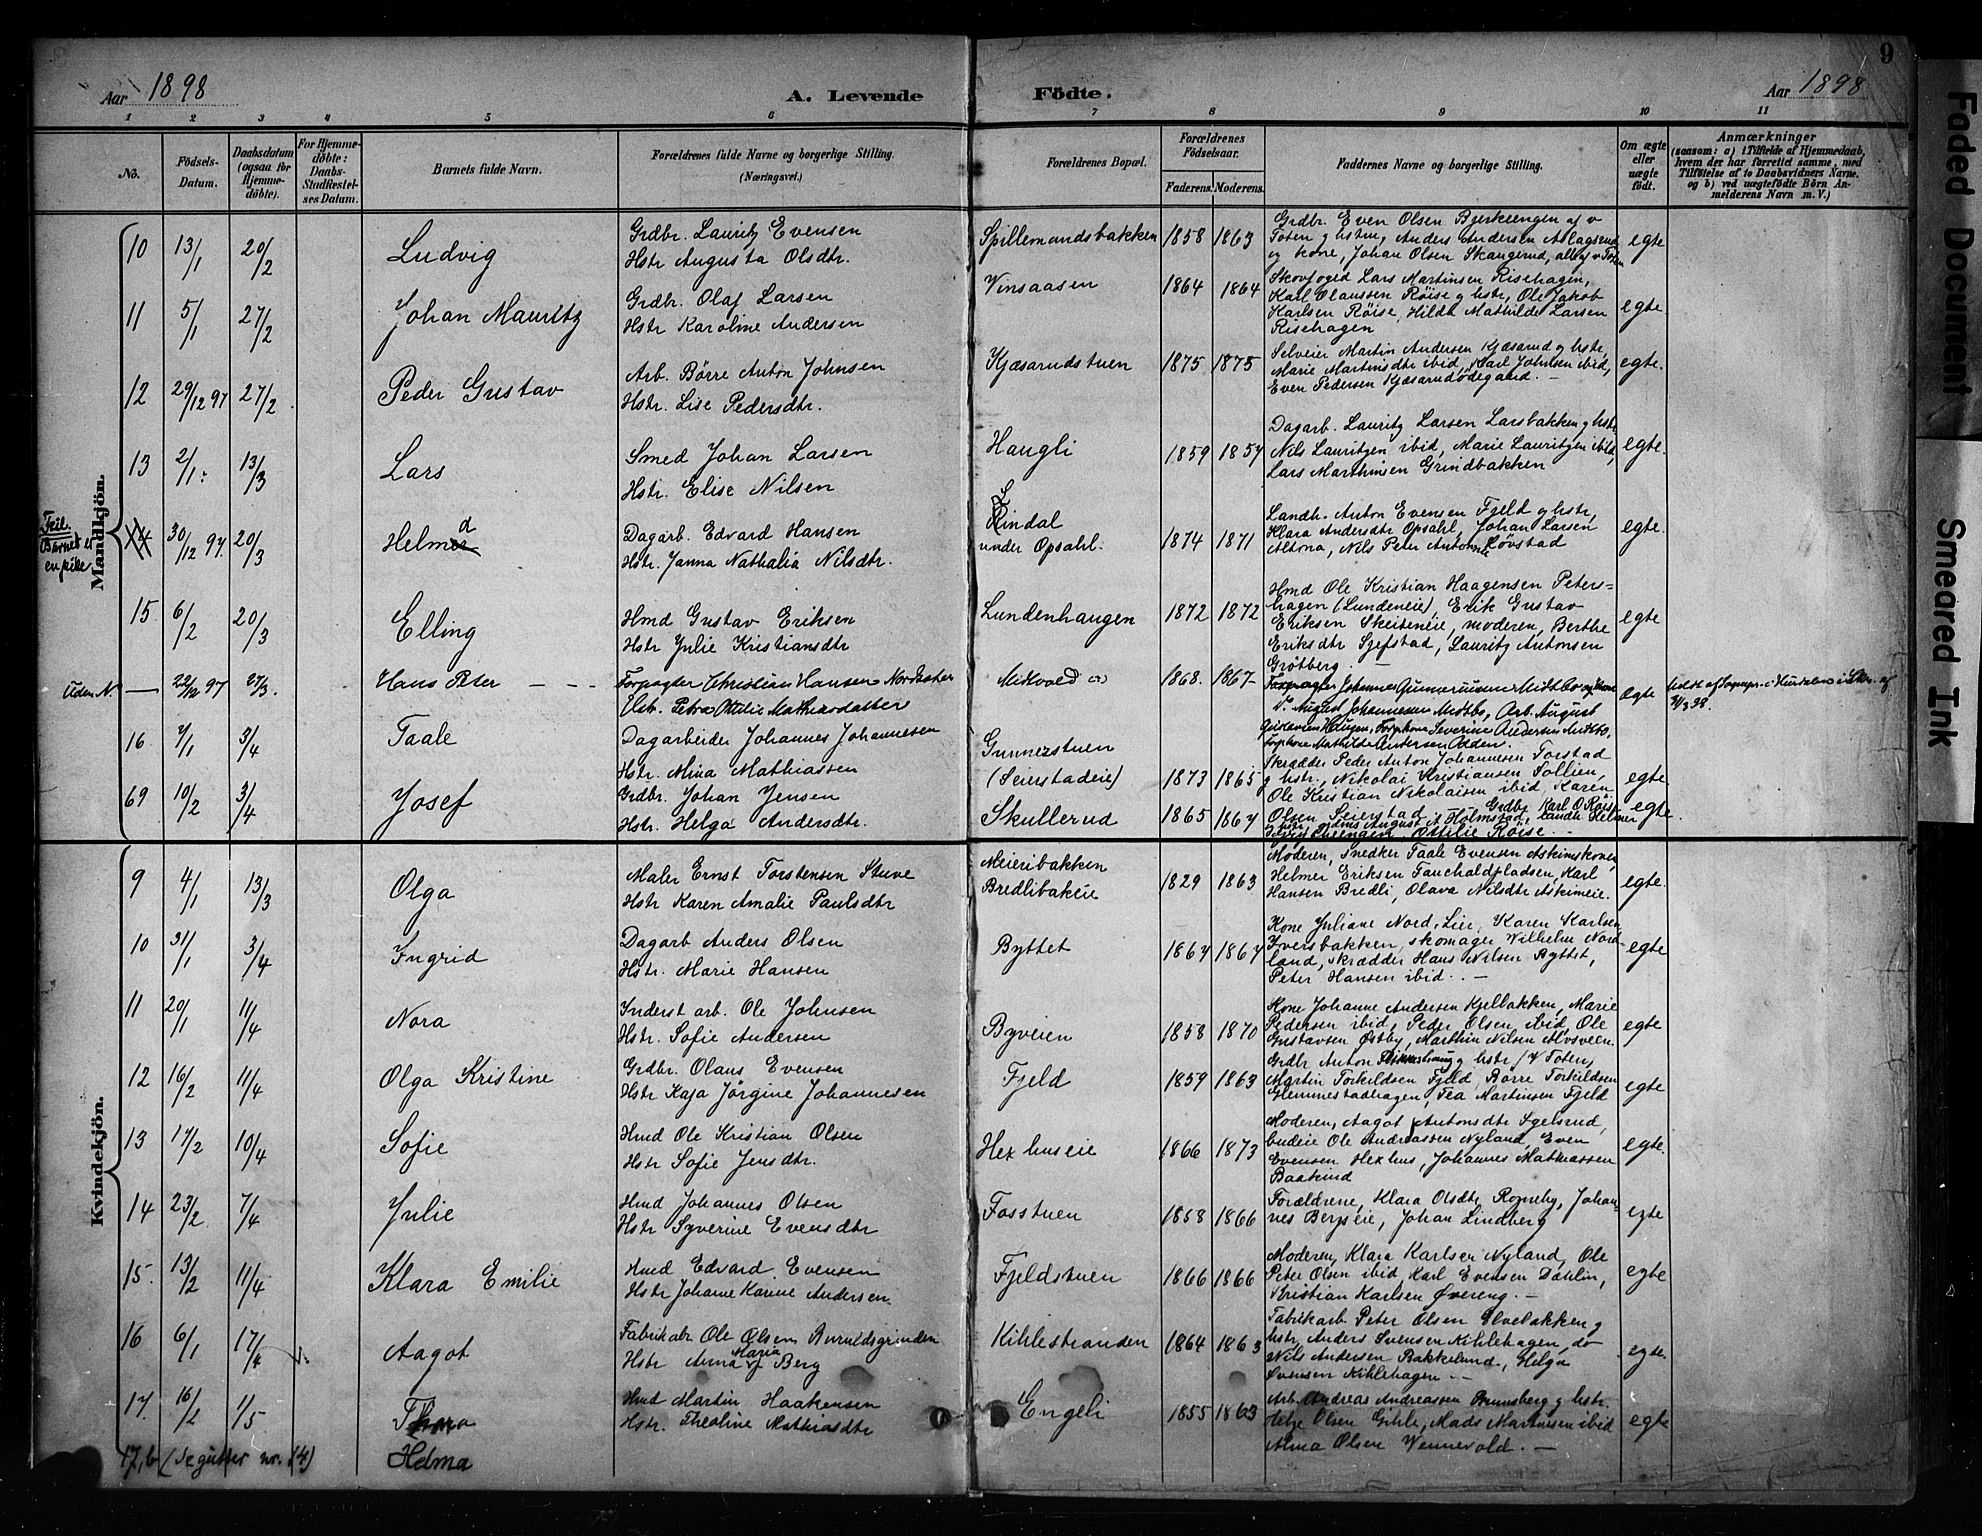 9
Aar 1898
A. Levende
Födte.
Aar 1898
1 2 3 4 5 6 7 8 9 10 11
No.
Födsels-Datum.
Daabsdatum (ogsaa for Hjemme-döbte).
For Hjemme-döbte: Daabs-Stadfæstel-ses Datum.
Barnets fulde Navn.
Forældrenes fulde Navne og borgerlige Stilling. (Næringsvei.)
Forældrenes Bopæl.
Forældrenes Födselsaar.
Faderens. Moderens.
Faddernes Navne og borgerlige Stilling.
Om ægte eller uægte födt.
Anmærkninger (saasom: a) i Tilfælde af Hjemmedaab, hvem der har forrettet samme, med Tilföielse af to Daabsvidners Navne. og b) ved uægtefödte Börn An-melderens Navn m. V.)
Mandkjön.
10 13/1 20/2 Ludvig
Grdbr. Lauritz Evensen
Hstr Augusta Olsdtr.
Spillemandsbakken 1858 1863
Grdbr. Even Olsen Bjerkeengen af v
Toten g hstru, Anders Andersen Aslagsrud
og kone, Johan Olsen Skangerud, alle af v Toten
egte
11 5/1 27/2 Johan Mauritz
Grdbr. Olaf Larsen
Hstr Karoline Andersen
Vinsaasen 1864 1864
Skovfoged Lars Martinsen Risehagen,
Karl Olaussen Røise g hstr, Ole Jakob
Karlsen Røise, Hilda Mathilde Larsen
Risehagen
egte
12 29/12 97 27/2 Peder Gustav
Arb. Børre Anton Johnsen
Hstr. Lise Pedersdtr.
Kjæsarudstuen 1875 1875
Selveier Martin Andersen Kjæsarud g hstr,
Marie Martinsdtr ibid, Karl Johnsen ibid,
Even Pedersen Kjæsarudødegaard. —
egte.
13 2/1 13/3 Lars
Smed Johan Larsen
Hstr. Elise Nilsen
Haugli 1859 1857
Dagarb. Lauritz Larsen Larsbakken g hstr
Nils Lauritzen ibid, Marie Lauritzen ibid,
Lars Marthinsen Grindbakken
egte.
Feil. Barnet er en pike
14 30/12 97. 20/3 Helmer d
Dagarb. Edvard Hansen
Hstr. Janna Nathalia Nilsdtr.
Lindal
under Opsahl. 1874 1871
Landh. Anton Evensen Fjeld g hstr,
Klara Andersdtr Opsahl, Johan Larsen
Altona, Nils Peter Antonsen Røvstad
egte
15. 6/2 20/3 Elling
Hmd Gustav Eriksen
Hstr Julie Kristiansdtr
Lundenhaugen 1872 1872
Hmd Ole Kristian Haagensen Peters-
hagen (Lundeneie), Erik Gustav
Eriksen Skeiteneie, moderen, Berthe
Eriksdtr Sjefstad, Lauritz Antonsen
Grøtberg. —
egte
Uden No — 22/12 97 27/3. Hans Peter
Forpagter Christian Hansen Nordseter
Hstr. Petra Otilie Mathiasdatter
Midtvold 1868. 1867
Forpagter Johannes Gunneriusen Midtbo og kone
August Johannesen Midtbo, Arb. August
Gustavsen Haugen, Forpkone Severine Andersen Midtbo,
Forpkone Mathilde Andersen Odden.
Ægte
16 7/1 3/4 Taale
Dagarbeider Johannes Johannesen
Hstr. Mina Mathiassen
Gunnerstuen
(Seierstadeie) 1873 1865
Skrædder Peder Anton Johannesen Forstad
g hstr, Nikolai Kristiansen Follien,
Ole Kristian Nikolaisen ibid, Karen
Olsen Seierstad
egte
69 10/2 3/4 Josef
Grdbr. Johan Jensen
Hstr. Helga Andersdtr.
Skullerud 1865 1867
Grdbr. Karl O Røise
Ottilie Røise. —
egte.
Kvindekjön.
9 4/1 13/3 Olga
Maler Ernst Torstensen Stuve
Hstr Karen Amalie Paulsdtr
Meieribakken
Bredlibakeie 1829 1863
Moderen, snedker Taale Evensen Askimskonen
Helmer Eriksen Fauchaldpladsen, Karl
Hansen Bredli, Olava Nilsdtr Askimeie.
egte.
10 31/1 3/4 Ingrid
Dagarb Anders Olsen
Hstr. Marie Hansen
Byttet 1867 1867
Kone Juliane Nord-Lier, Karen Karlsen
Iversbakken, skomager Vilhelm Nord-
land, skrædder Hans Nilsen Byttet,
Peter Hansen ibid. —
egte
11 20/1 11/4 Nora
Inderst arb. Ole Johnsen
Hstr. Sofie Andersen
Byveien 1858 1870
Kone Johanne Andersen Kjelbakken, Marie
Pedersen ibid, Peder Olsen ibid, Ole
Gustavsen Østby, Marthin Nilsen Alvsveen.
egte
12 16/2 11/4 Olga Kristine
Grdbr. Olaus Evensen
Hstr Kaja Jørgine Johannesen
Fjeld 1859 1863
Grdbr Anton g hstr (V Toten,
Martin Torkildsen Fjeld, Børre Torkildsen
Glemmestadhagen, Tea Martinsen Fjeld
egte
13 17/2 10/4 Sofie
Hmd Ole Kristian Olsen
Hstr Sofie Jensdtr.
Hexhuseie 1866 1873
Moderen, Aagot Antonsdtr Igelsrud,
budeie Ole Andreassen Nyland, Even
Evensen Hexhus, Johannes Mathiassen
Baakind
egte.
14 23/2 7/4 Julie
Hmd Johannes Olsen
Hstr Syverine Evensdtr
Fosstuen 1858 1866
Forældrene, Klara Olsdtr Rogneby, Johan-
nes Bergseie, Johan Lindberg
egte
15. 13/2 11/4 Klara Emilie
Hmd Edvard Evensen
Hstr Johanne Karine Andersen.
Fjeldstuen 1866 1866
Moderen, Klara Karlsen Nyland, Ole
Peter Olsen ibid, Karl Evensen Dahlin,
Kristian Karlsen Øvereng. —
egte
16 6/1 17/4 Aagot
Fabrikarb Ole Olsen Buruldsgrinden
Hstr Anna Maria Berg
Kihlestranden 1864 1863
Fabrikarb Peter Olsen Elvebakken g
hstr, Anders Svensen Kihlehagen, do
Nils Andersen Bakkelund, Helga
Svensen Kihlehagen —
egte
17. 16/2 1/5 Thora
Hmd Martin Haakensen
Hstr. Theoline Mathiasdtr
Engeli 1855 1863
Arb. Andreas Andreassen Brunsberg g hstr.
Helge Olsen Gihle, Mads Martinsen ibid
Alma Olsen Wennevold. —
egte
17,b (se gutter nr. 14) Helma
Faded Document
Smeared Ink